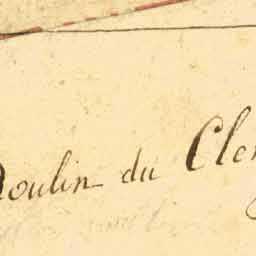 Moulin du Cler